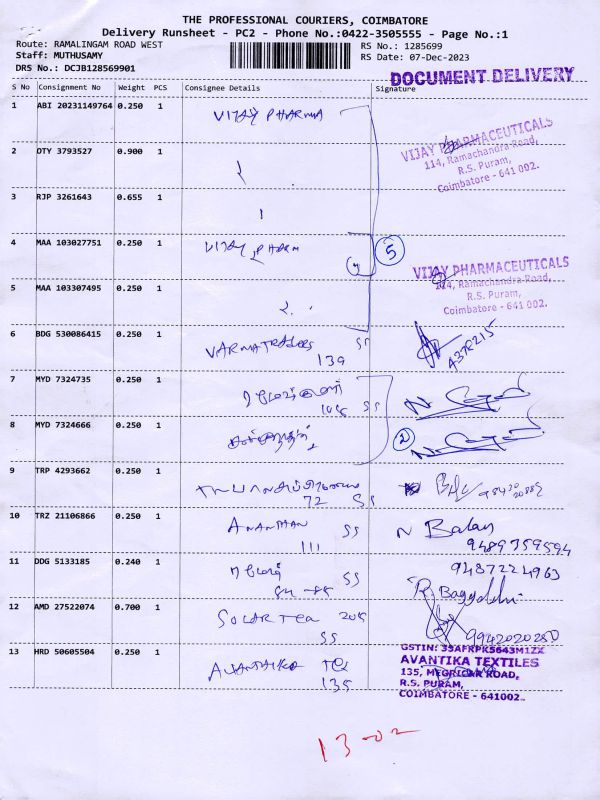 THE PROFESSIONAL COURIERS, COIMBATORE
Delivery Runsheet - PC2 - Phone No.:0422-3505555 - Page No.:1
Route: RAMALINGAM ROAD WEST
RS No.: 1285699
Staff: MUTHUSAMY
RS Date: 07-Dec-2023
DRS No.: DCJB128569901
DOCUMENT DELIVERY
S No Consignment No Weight PCS Consignee Details Signature
1 ABI 20231149764 0.250 1 VIJAY PHARMA
VIJAY PHARMACEUTICALS
114, Ramachandra Road,
R.S. Puram,
Coimbatore - 641 002.
2 DTY 3793527 0.900 1
3 RJP 3261643 0.655 1
4 MAA 103027751 0.250 1 VIJAY PHARM
5
VIJAY PHARMACEUTICALS
114, Ramachandra Road,
R.S. Puram,
Coimbatore - 641 002.
5 MAA 103307495 0.250 1
6 BDG 530086415 0.250 1 VARMA TRADERS SS
139
7 MYD 7324735 0.250 1
SS
8 MYD 7324666 0.250 1
2
9 TRP 4293662 0.250 1
72 SS
10 TRZ 21106866 0.250 1 ANANTHAN SS N Balan
111 9489759594
11 DDG 5133185 0.240 1 SS 9487224963
12 AMD 27522074 0.700 1 SOLAR TEA
SS 9942020250
13 HRD 50605504 0.250 1 AVANTHIKA TEX
135
GSTIN: 33AFKPK5643M1ZX
AVANTIKA TEXTILES
135, MEGRICAR ROAD,
R.S. PURAM,
COIMBATORE - 641002.
13-02